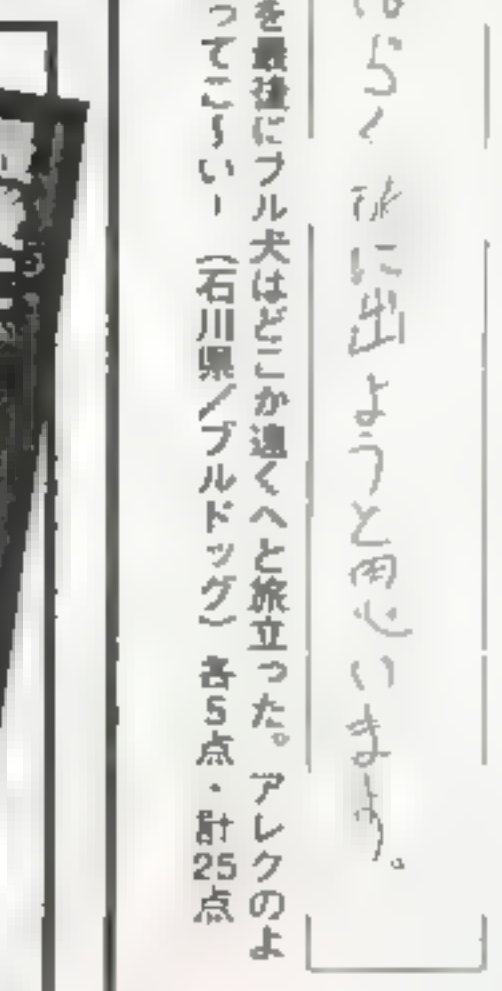 らく旅に出ようと思います。
を最後にブル犬はどこか遠くへと旅立った。アレクのよ
ってこ〜いー（石川県／ブルドッグ）各5点・計25点